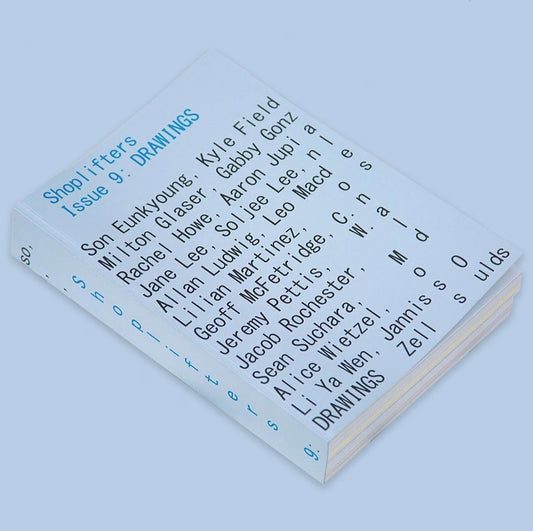 Shoplifters
Issue 9: DRAWINGS
Son Eunkyoung, Kyle Field
Milton Glaser, Gabby Gonz
Rachel Howe, Aaron Jupi a
Jane Lee, Soljee Lee, n l
Allan Ludwig, Leo Macd e
Lilian Martinez, o s
Geoff McFetridge, C. n
Jeremy Pettis, W. a
Jacob Rochester, M l
Sean Suchara, o d
Alice Wietzel,
Li Ya Wen, Janniss O
DRAWINGS Zell s ulds
so, , . Shoplifters 9: